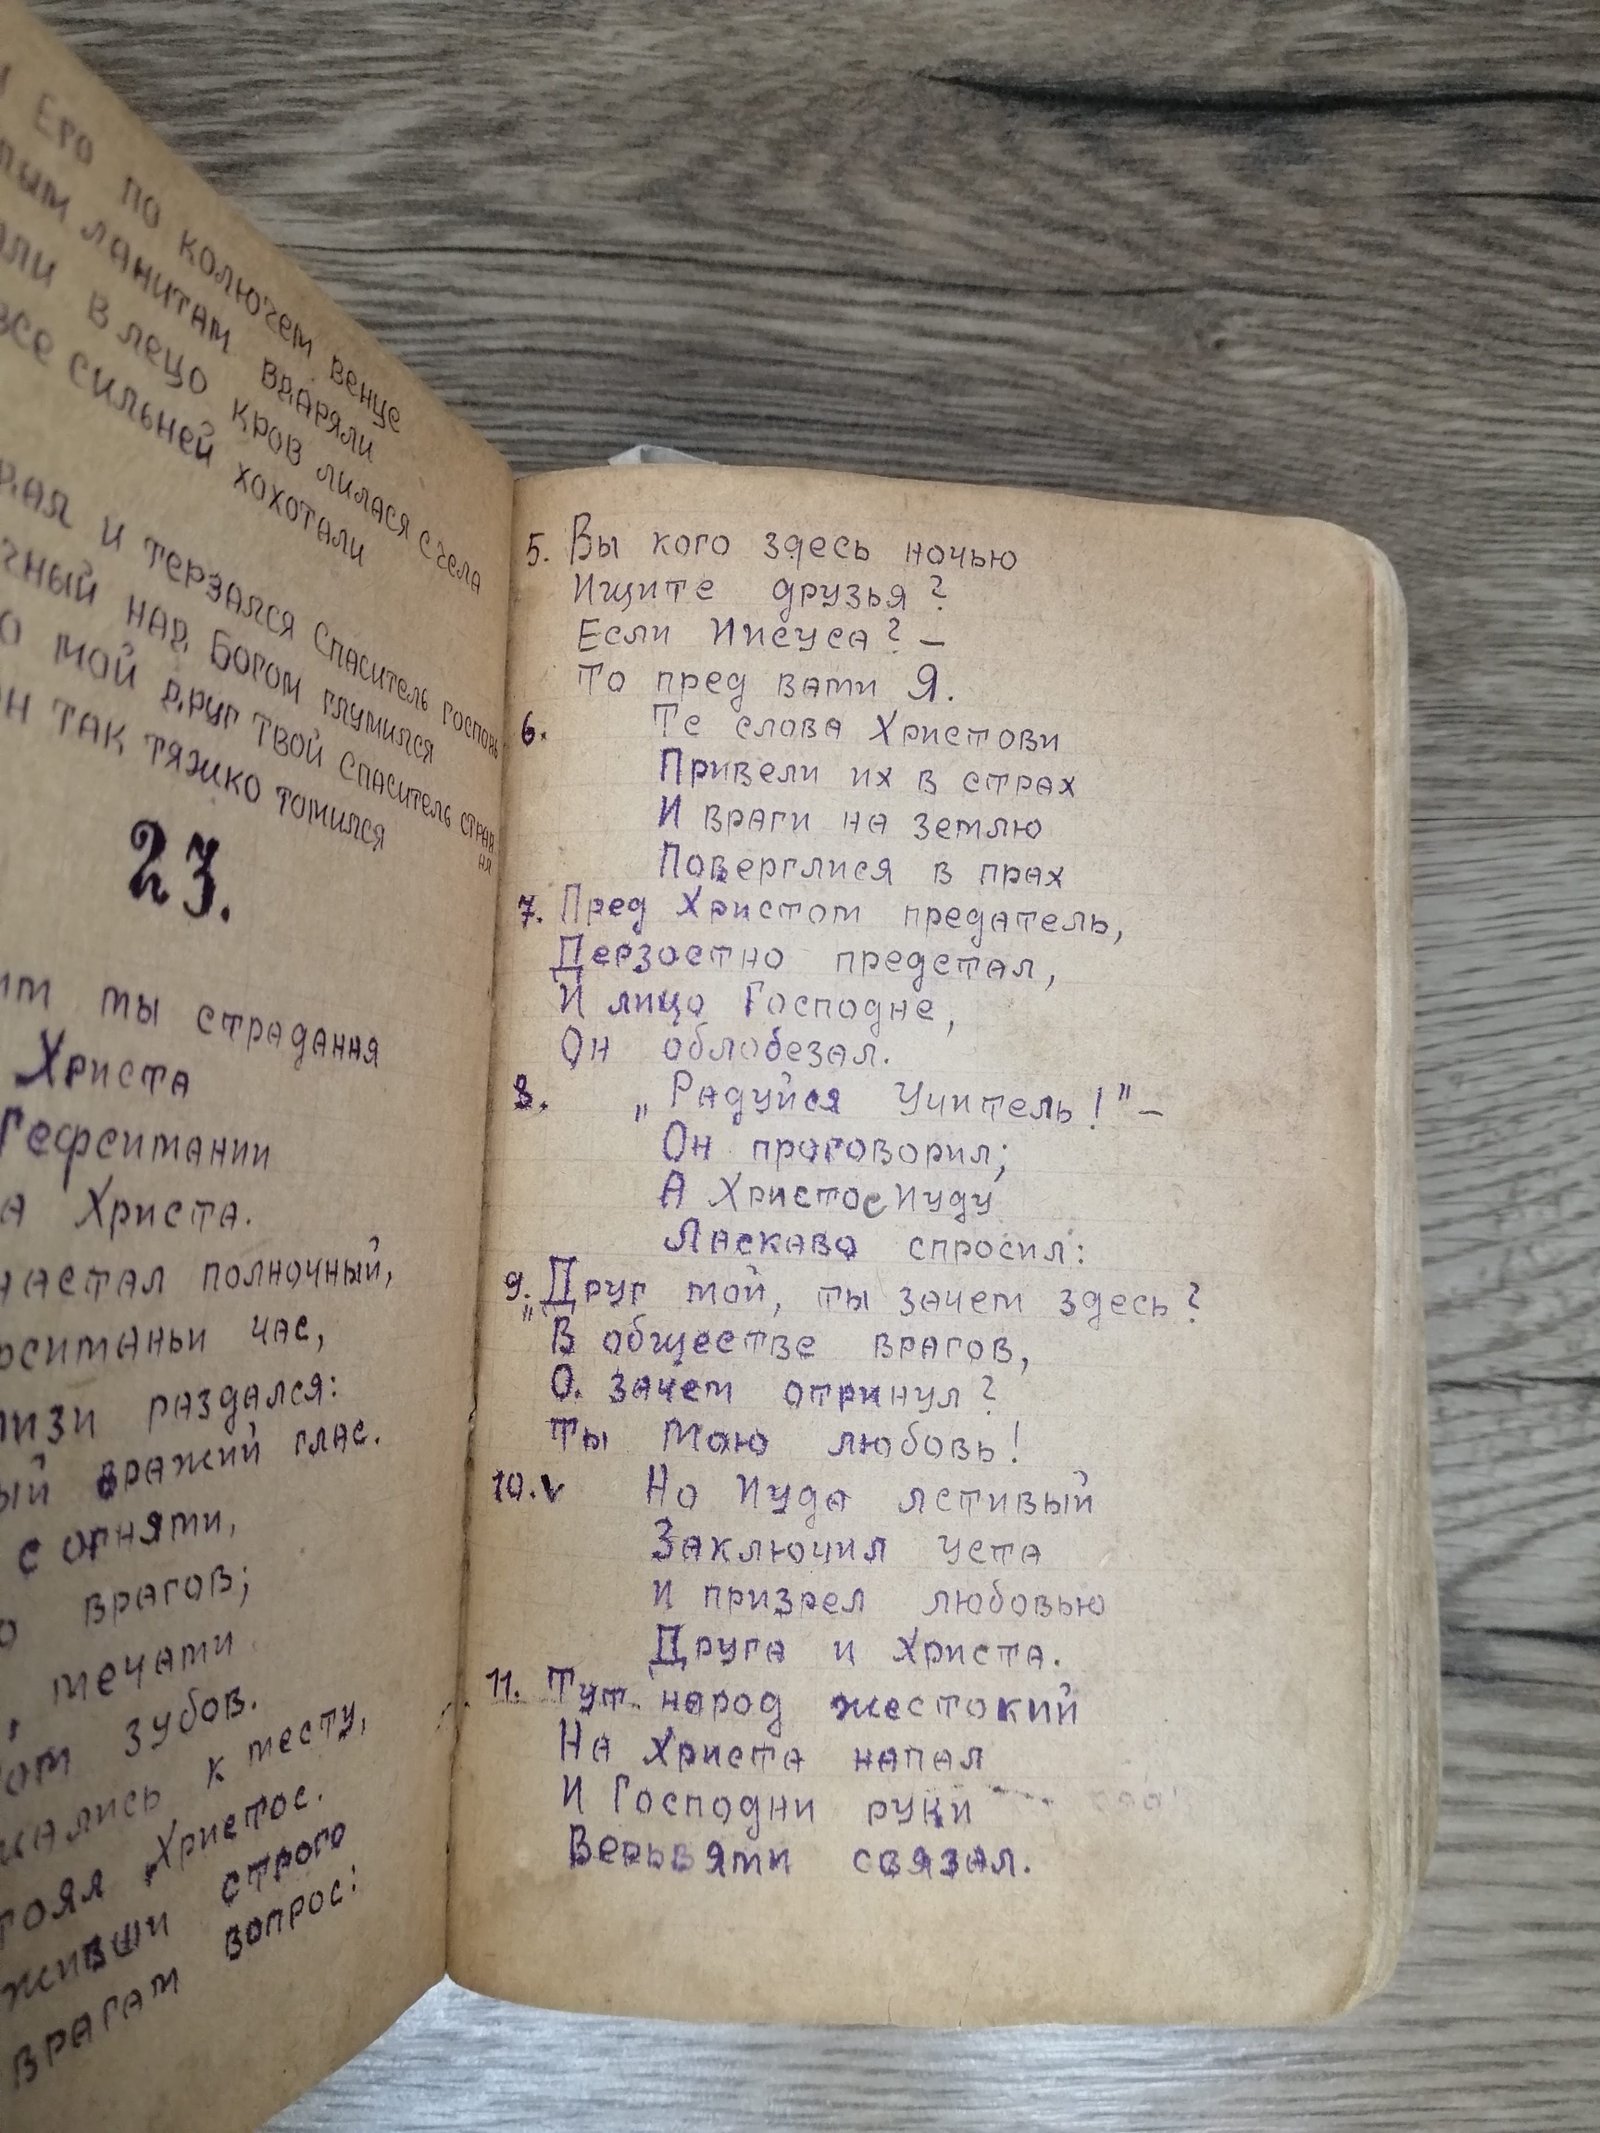 Его по колючем венце
ланитам вдаряли
в лецо кров лилася с чела
все сильней хохотали
и терзался Спаситель Господь
над Богом глумился
мой друг твой Спаситель страдая
так тяжко томился
23.
ты страдання
Христа
Гефсимании
Христа.
настал полночный,
час,
раздался:
вражий глас.
с огнями,
врагов;
мечами
зубов.
к месту,
Христос.
строго
врагам вопрос:
5. Вы кого здесь ночью
Ищите друзья?
Если Иисуса? –
То пред вами Я.
6. Те слова Христови
Привели их в страх
И враги на землю
Поверглися в прах
7. Пред Христом предатель,
Дерзостно предстал,
И лицо Господне,
Он облобезал.
8. „Радуйся Учитель!" –
Он проговорил;
А Христос Иуду
Ласкаво спросил:
9. „Друг мой, ты зачем здесь?
В обществе врагов,
О. зачем отринул?
Ты Мою любовь!
10. v Но Иуда лстивый
Заключил уста
И призрел любовью
Друга и Христа.
11. Тут народ жестокий
На Христа напал
И Господни руки
Верьвями связал.